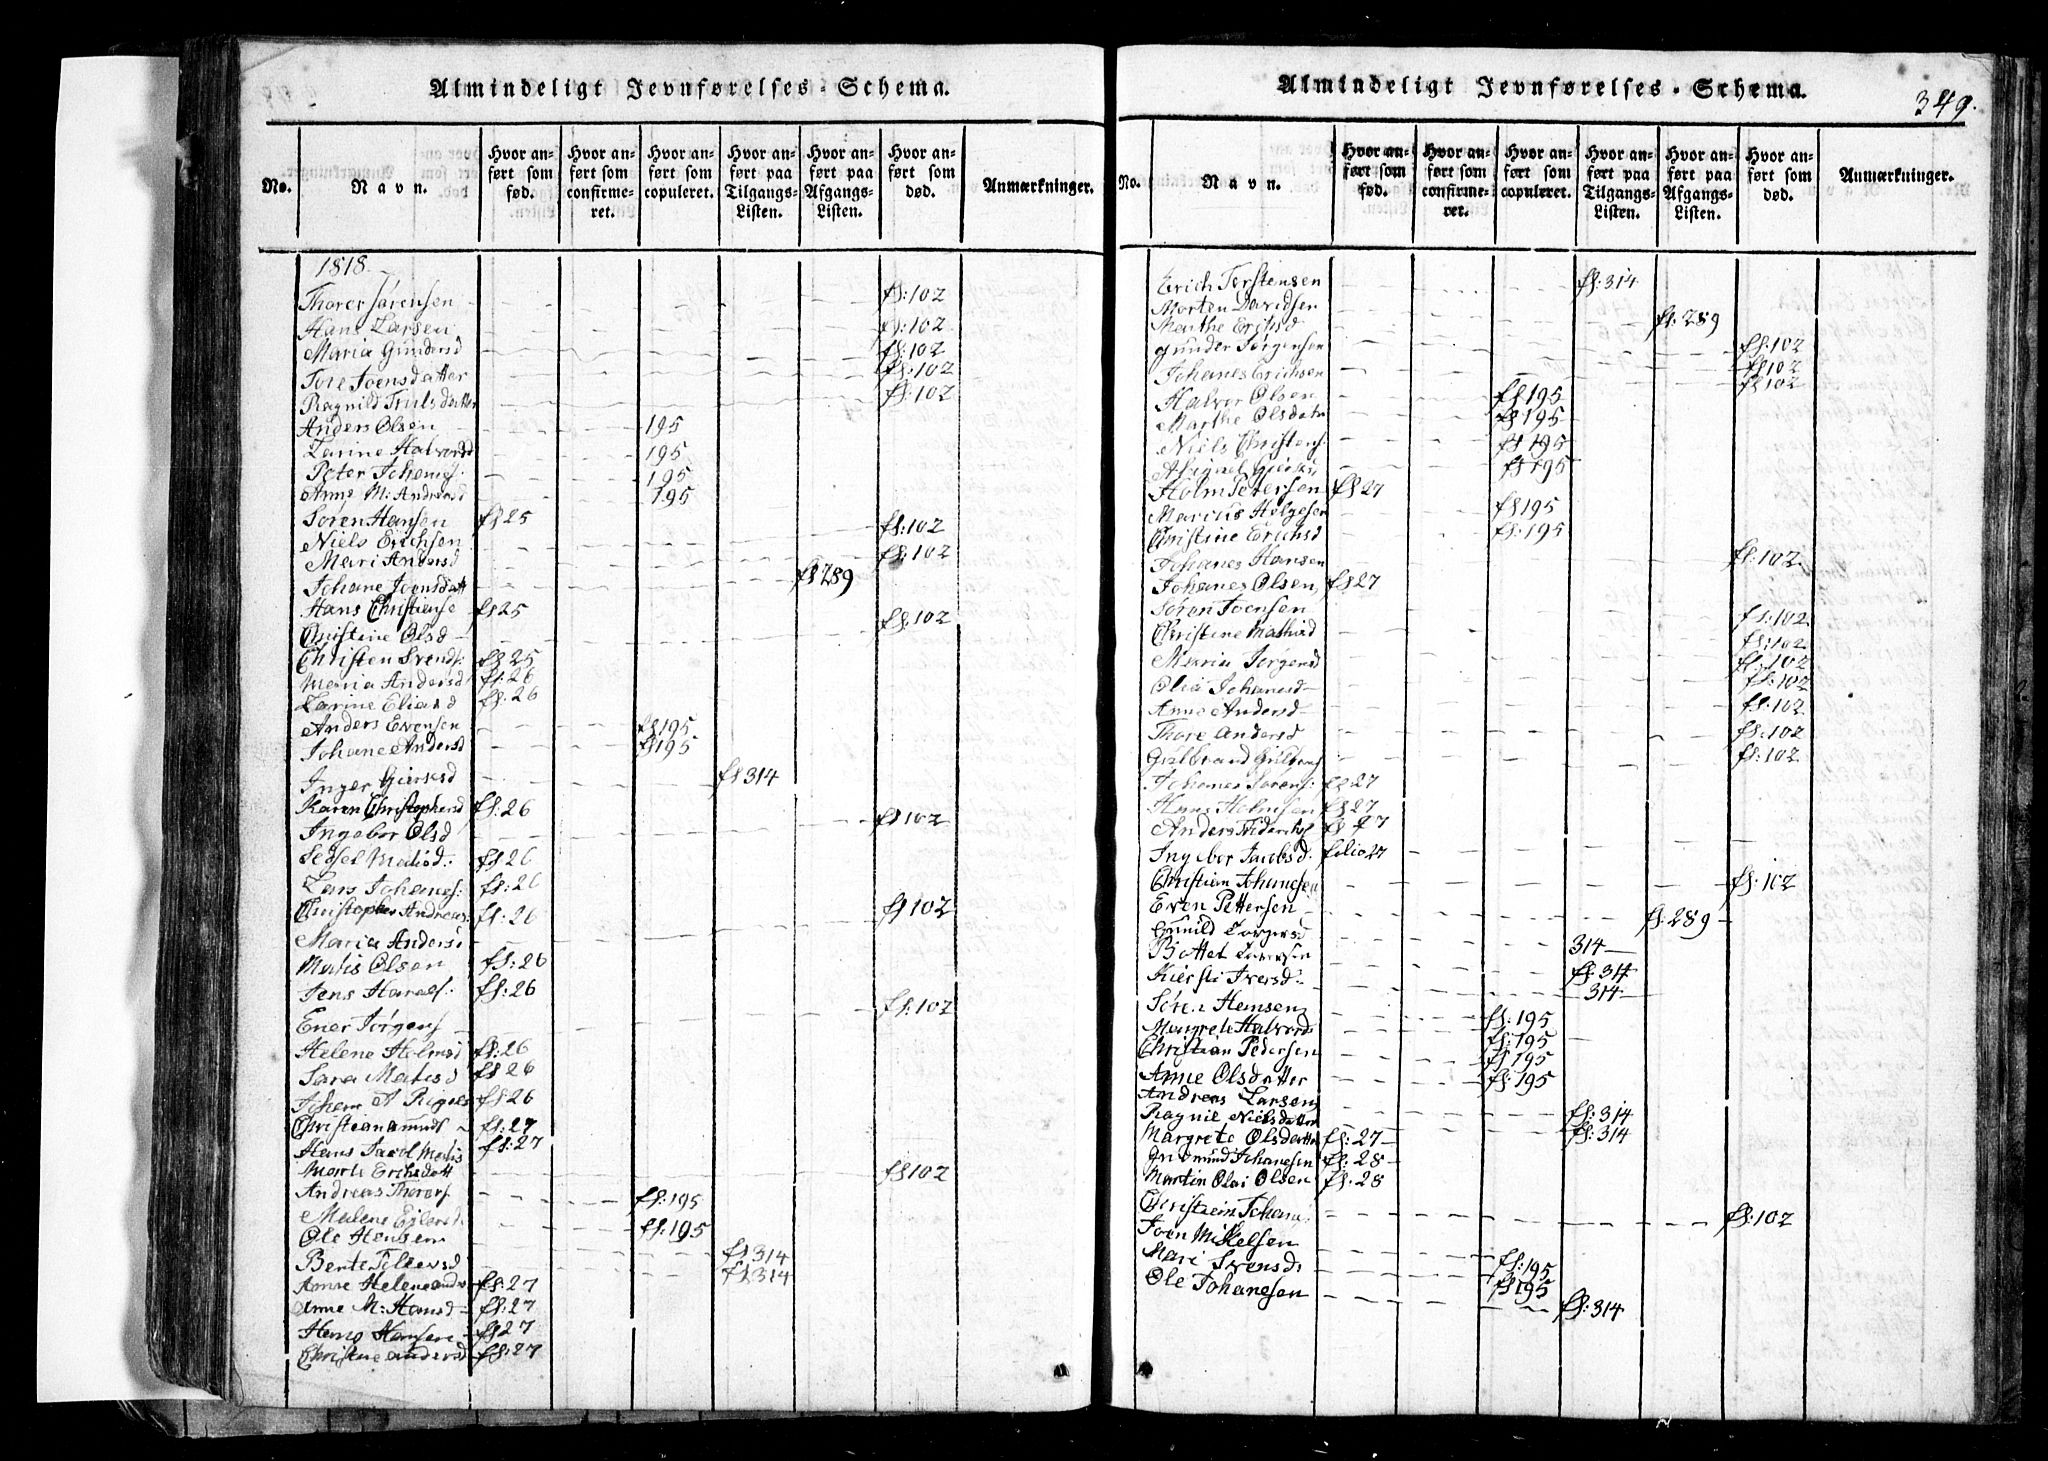 Almindeligt Jevnførelses-Schema.
No.
Navn.
Hvor anført som fød.
Hvor anført som confirmeret.
Hvor anført som copuleret.
Hvor anført paa Tilgangs-Listen.
Hvor anført paa Afgangs-Listen.
Hvor anført som død.
Anmærkninger.
1818.
Thorer Sørensen fs: 102
Hans Larsen fs: 102
Maria Gunders d fs: 102
Tore Joensdatter fs: 102
Ragnild Trulsdatter fs: 102
Anders Olsen 195
Larine Halvorsd 195
Peter Johanes: 195
Anne M: Andreasd 195
Søren Hansen fs 25
Niels Erichsen fs: 102
Mari Andersd fs: 102
Johane Joensdatt fs 289
Hans Christiense fs 25
Christine Olsd fs: 102
Christen Svends: fs 25
Maria Andersd fs: 26
Larine Eliasd fs: 26
Anders Evensen fs 195
Johane Andersd fs 195
Inger fs 314
Karen Christophersd fs: 26
Ingebor Olsd fs 102
Sedsel fs 26
Lars Johanes: fs: 26
Christopher Andreas: fs: 26
Maria Andersd fs 102
Matis Olsen fs: 26
Jens fs: 26
Ener Jørgens fs: 102
Helene Holmsd fs: 26
Sara Matisd fs 26
fs 26
Christian amunds fs: 27
Hans Jacob Matis fs: 27
Marte Erichsdatt fs 102
Andreas Thorers fs: 195
Malene fs: 195
Ole Hansen fs 314
Bente Tellevsd fs 314
Anne Helene fs: 27
Anne M: Hansd fs: 27
Hans Hansen fs 27
Christine andersd fs: 27
Almindeligt Jevnførelses-Schema.
349.
No.
Navn.
Hvor anført som fød.
Hvor anført som confirmeret.
Hvor anført som copuleret.
Hvor anført paa Tilgangs-Listen.
Hvor anført paa Afgangs-Listen.
Hvor anført som død.
Anmærkninger.
Erich Torstensen fs: 314
Morten Davidsen fs: 289
Marthe Erichsd fs: 102
Gunder Jørgensen fs 102
Johanes Erichsen fs 102
Halvor Olsen fs 195
Marthe Olsdatr fs 195
Niels Christens fs 195
fs 195
Holm Petersen fs 27
Marcus Holgesen fs 195
Christine Erichsd fs: 195
Johanes Hansen fs: 102
Johanes Olsen fs 27
Søren Joensen fs: 102
Christine Mathisd fs: 102
Maria Jørgensd fs: 102
Olia Johanesd fs: 102
Anne Andersd fs: 102
Thore Andersd fs: 102
Gulbrand fs: 102
Johanes Sørens: fs 27
Hans Holmsen fs 27
Anders fs 27
Ingebor Jacobsd: folio 27
Christian Johanesen fs: 102
Even Pettersen fs: 289
Gunild 314
fs: 314
Kiersti Iversd: 314
Søren Hansen fs: 195
Margrete Halvorsd fs: 195
Christian Pedersen fs 195
Anne Olsdatter fs: 195
Andreas Larsen fs: 314
Ragnil Nielsdatter fs: 314
Margrete Olsdatter fs: 27
Johanesen fs: 28
Martin Olai Olsen fs: 28
Johanes fs: 102
Joen Mikkelsen fs: 195
Mari Svensd: fs 195
Ole Johanesen fs: 314